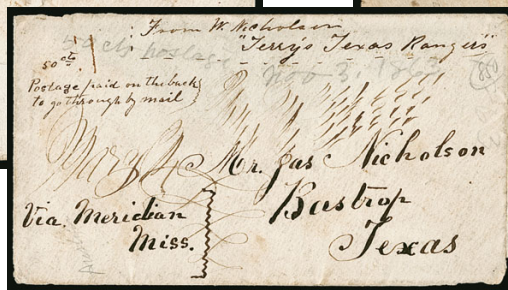 From W. Nicholson
"Terry's Texas Rangers"
50 cts postage
Nov 3, 186
50 cts.
Postage paid on the back
to go through by mail
Mary
Mr. Jas Nicholson
Bastrop
Texas
Via. Meridian
Miss.